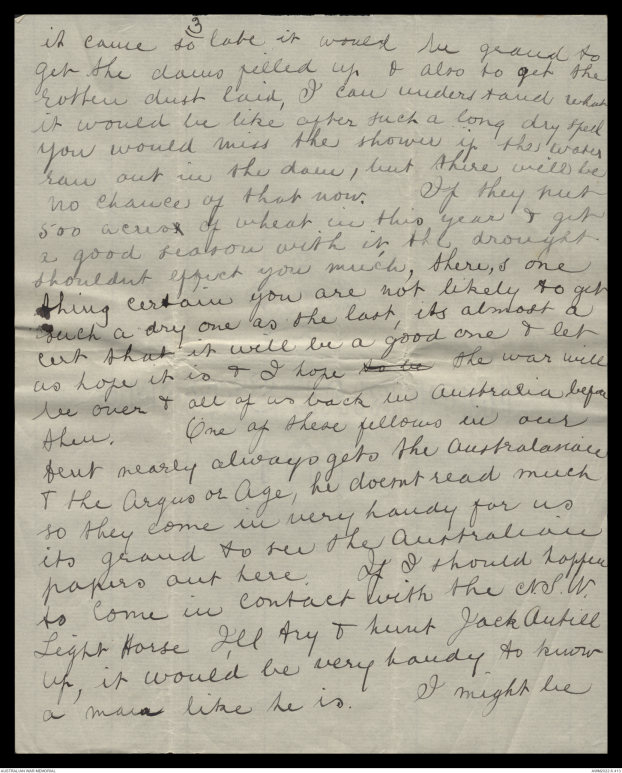 3
it came so late it would be grand to
get the dams filled up & also to get the
rotten dust laid, I can understand what
it would be like after such a long dry spell
you would miss the shower if the water
ran out in the dam, but there will be
no chance of that now. If they put
500 acres of wheat in this year & get
a good season with it, the drought
shouldnt effect you much, there,s one
thing certain you are not likely to get
such a dry one as the last, its almost a
cert that it will be a good one & let
us hope it is & I hope to be the war will
be over & all of us back in Australia before
then. One of these fellows in our
tent nearly always gets the Australasian
& the Argus or Age, he doesnt read much
so they come in very handy for us
its grand to see the Australian
papers out here. If I should happen
to come in contact with the N.S.W.
Light Horse I,ll try & hunt Jack Antill
up, it would be very handy to know
a man like he is. I might be
AUSTRALIAN WAR MEMORIAL